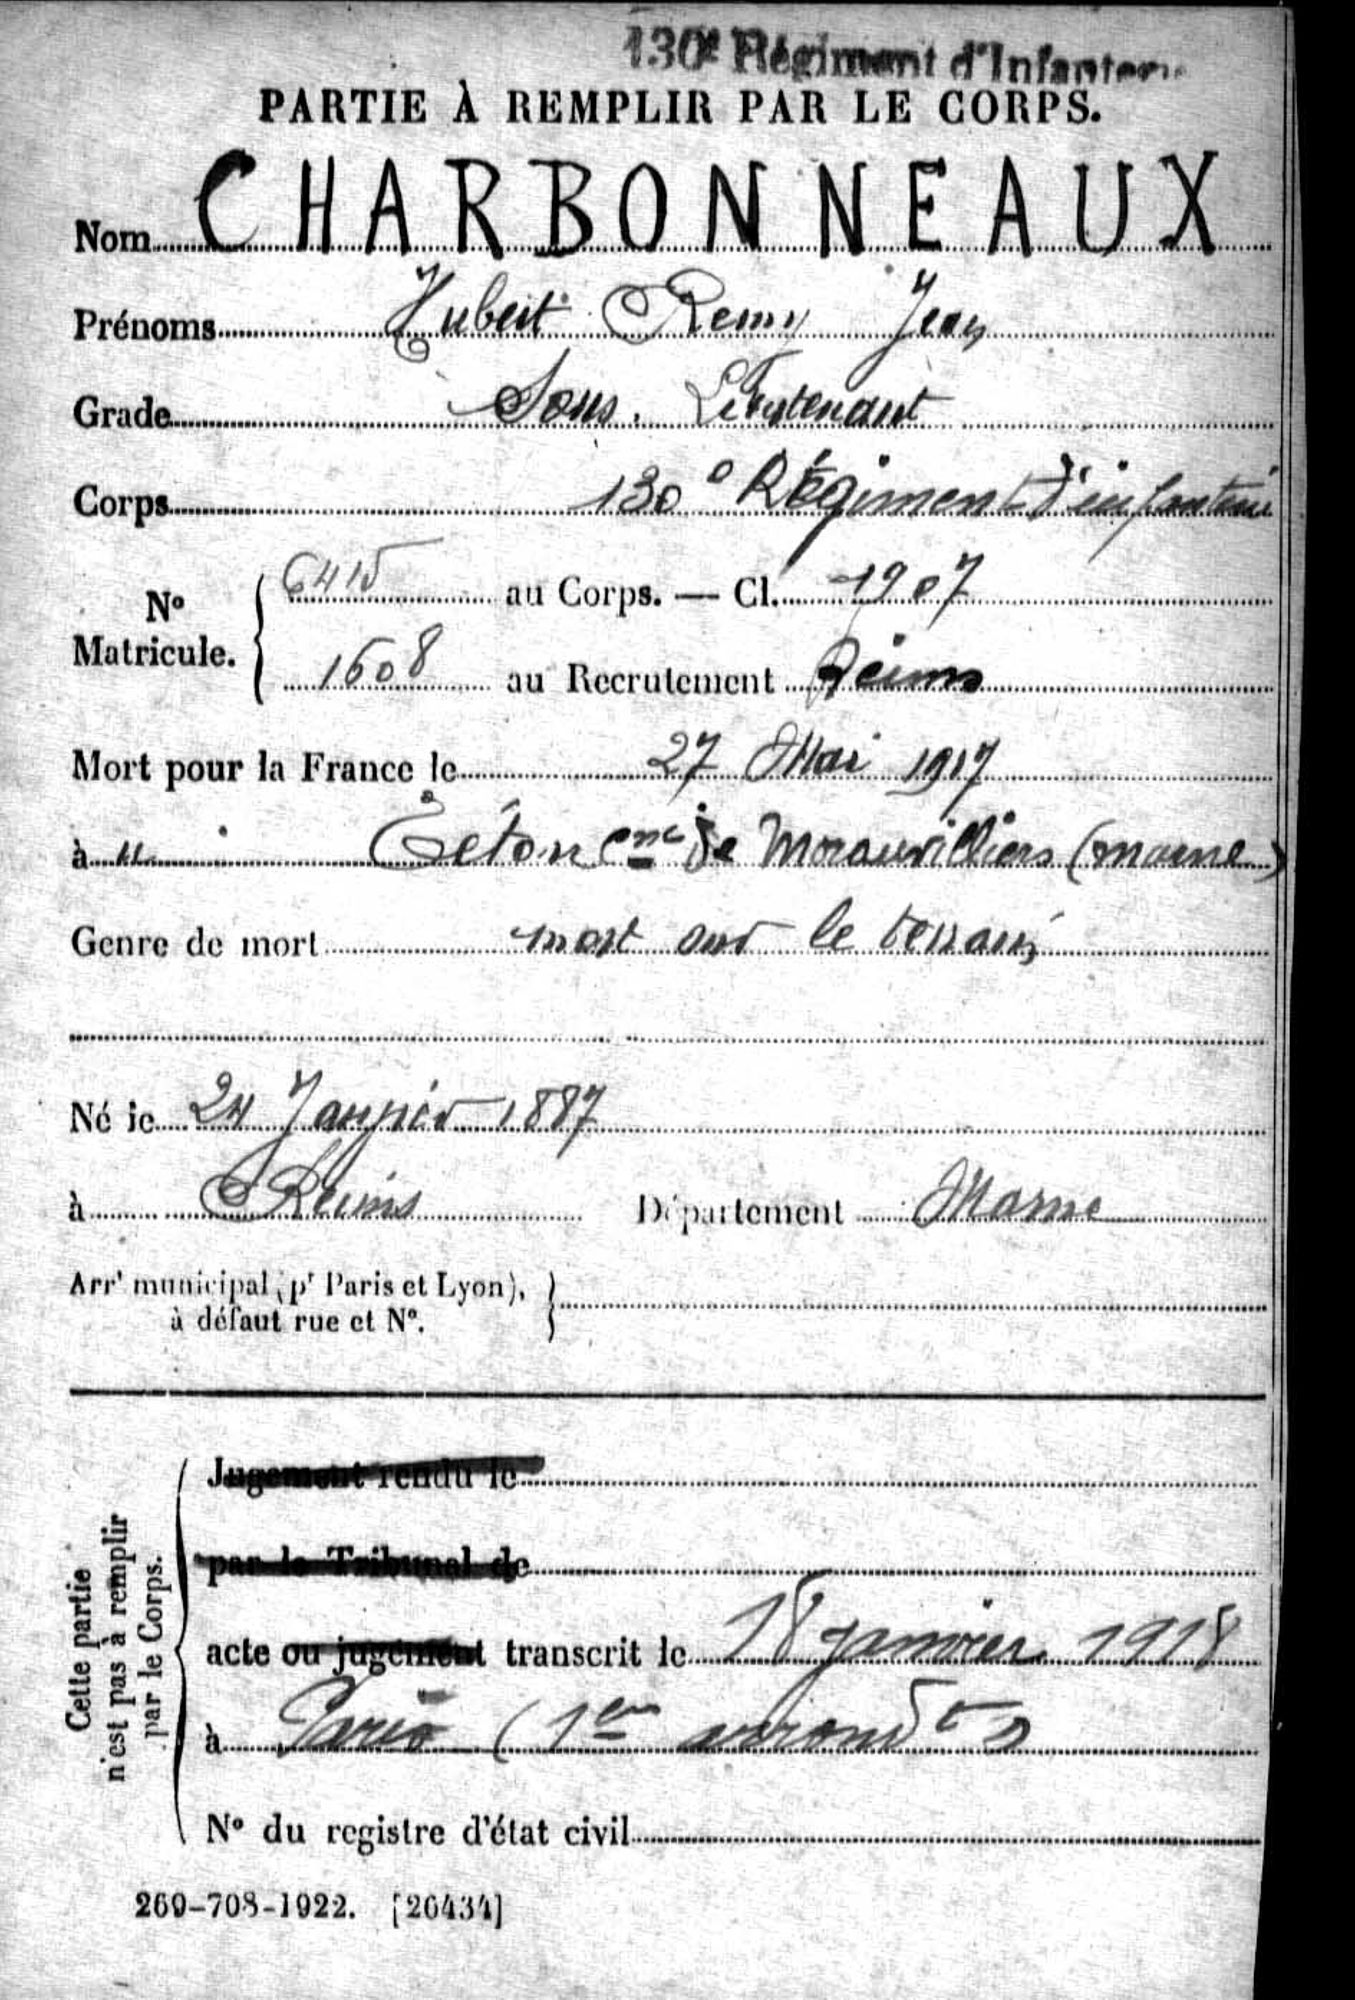 130e Régiment d'Infanterie
PARTIE À REMPLIR PAR LE CORPS.
Nom CHARBONNEAUX
Prénoms Hubert Remy Jean
Grade Sous. Lieutenant
Corps 130e Régiment d'infanterie
No Matricule. { 6415 au Corps. — Cl. 1907
1608 au Recrutement Reims
Mort pour la France le 27 Mai 1917
à u Téton Cne de Moronvilliers (marne)
Genre de mort mort sur le terrain
Né le 24 Janvier 1887
à Reims Département Marne
Arrt municipal (pr Paris et Lyon), }
à défaut rue et No.
Cette partie
n'est pas à remplir
par le Corps.
Jugement rendu le
par le Tribunal de
acte ou jugement transcrit le 18 janvier 1918
à Paris (1er arrondt)
No du registre d'état civil
269-708-1922. [26434]